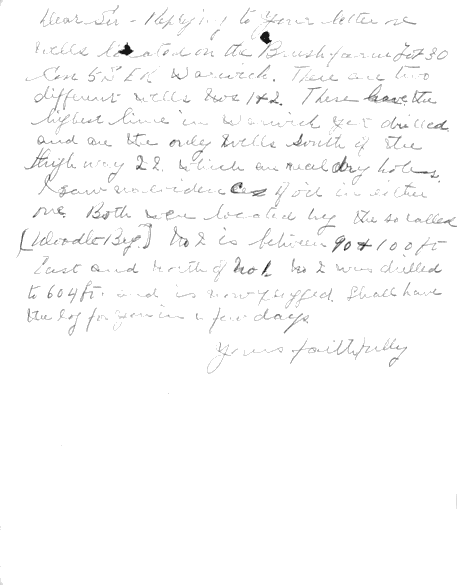 Dear Sir - Replying to your letter re
wells located on the Brush farm Lot 30
Con 5 S E R Warwick. There are two
different wells Nos 1 & 2. These have the
highest lime in Warwick yet drilled
and are the only wells South of the
Highway 22 which are real dry holes.
I saw no evidences of oil in either
one. Both were located by the so called
[Doodle Bug] No 2 is between 90 & 100 ft
East and North of No 1. No 2 was drilled
to 604 ft. and is now plugged. Shall have
the log for you in a few days
Yours faithfully